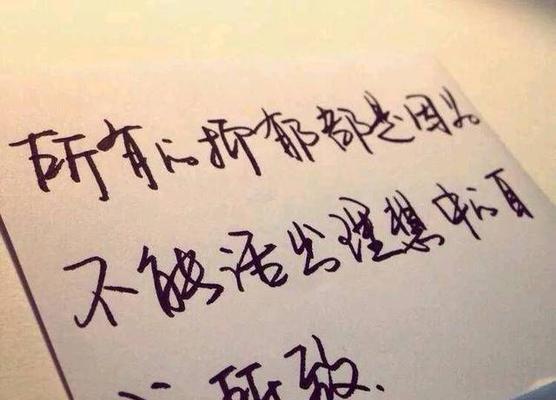 所有的抑郁都是因为
不能活出理想中的自
己所致.